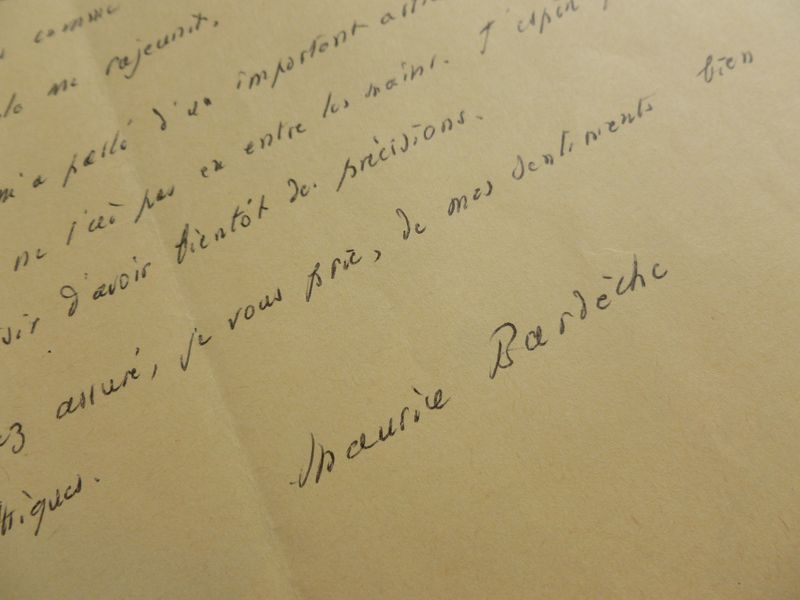 comme
me rajeunit.
m'a parlé d'un important
ne l'ai pas eu entre les mains. J'espère
d'avoir bientôt des précisions.
assuré, je vous prie, de mes sentiments bien
Maurice Bardèche